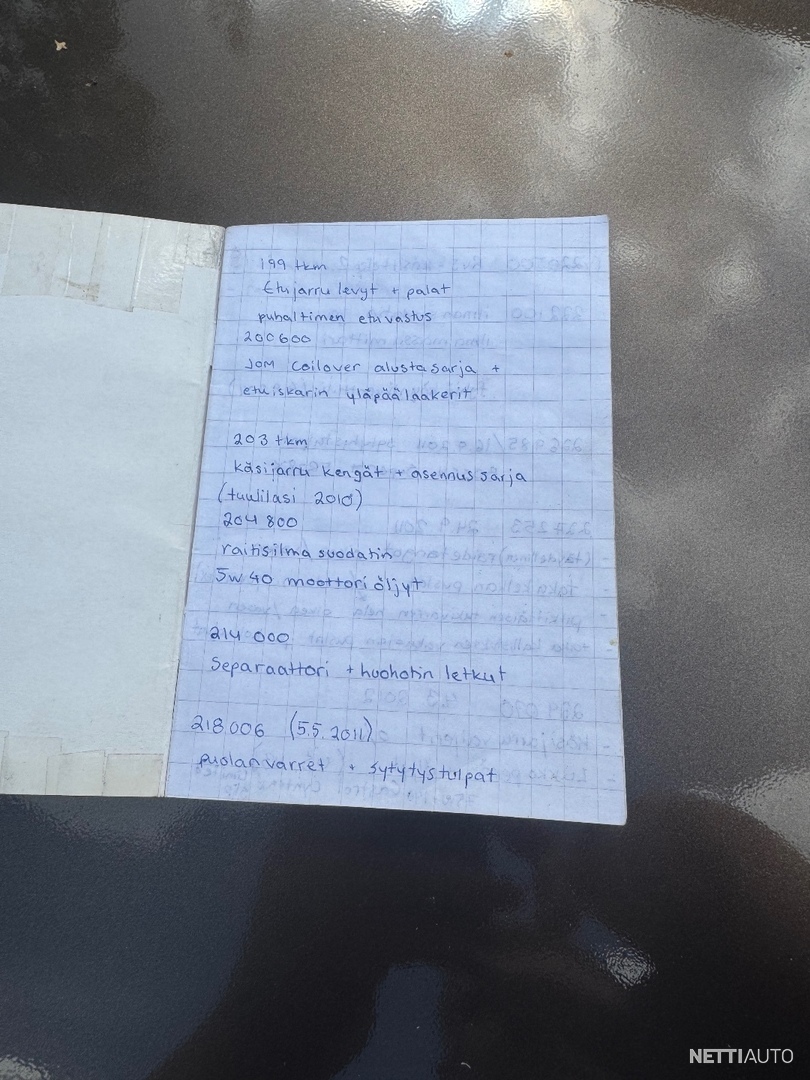 199 tkm
Etujarru levyt + palat
puhaltimen etuvastus
200600
JOM coilover alustasarja +
etuiskarin yläpäälaakerit
203 tkm
käsijarru kengät + asennussarja
(tuulilasi 2010)
204 800
raitisilma suodatin
5w40 moottoriöljyt
214 000
Separaattori + huohotin letkut
218.006 (5.5.2011)
puolanvarret + sytytystulpat
NETTIAUTO